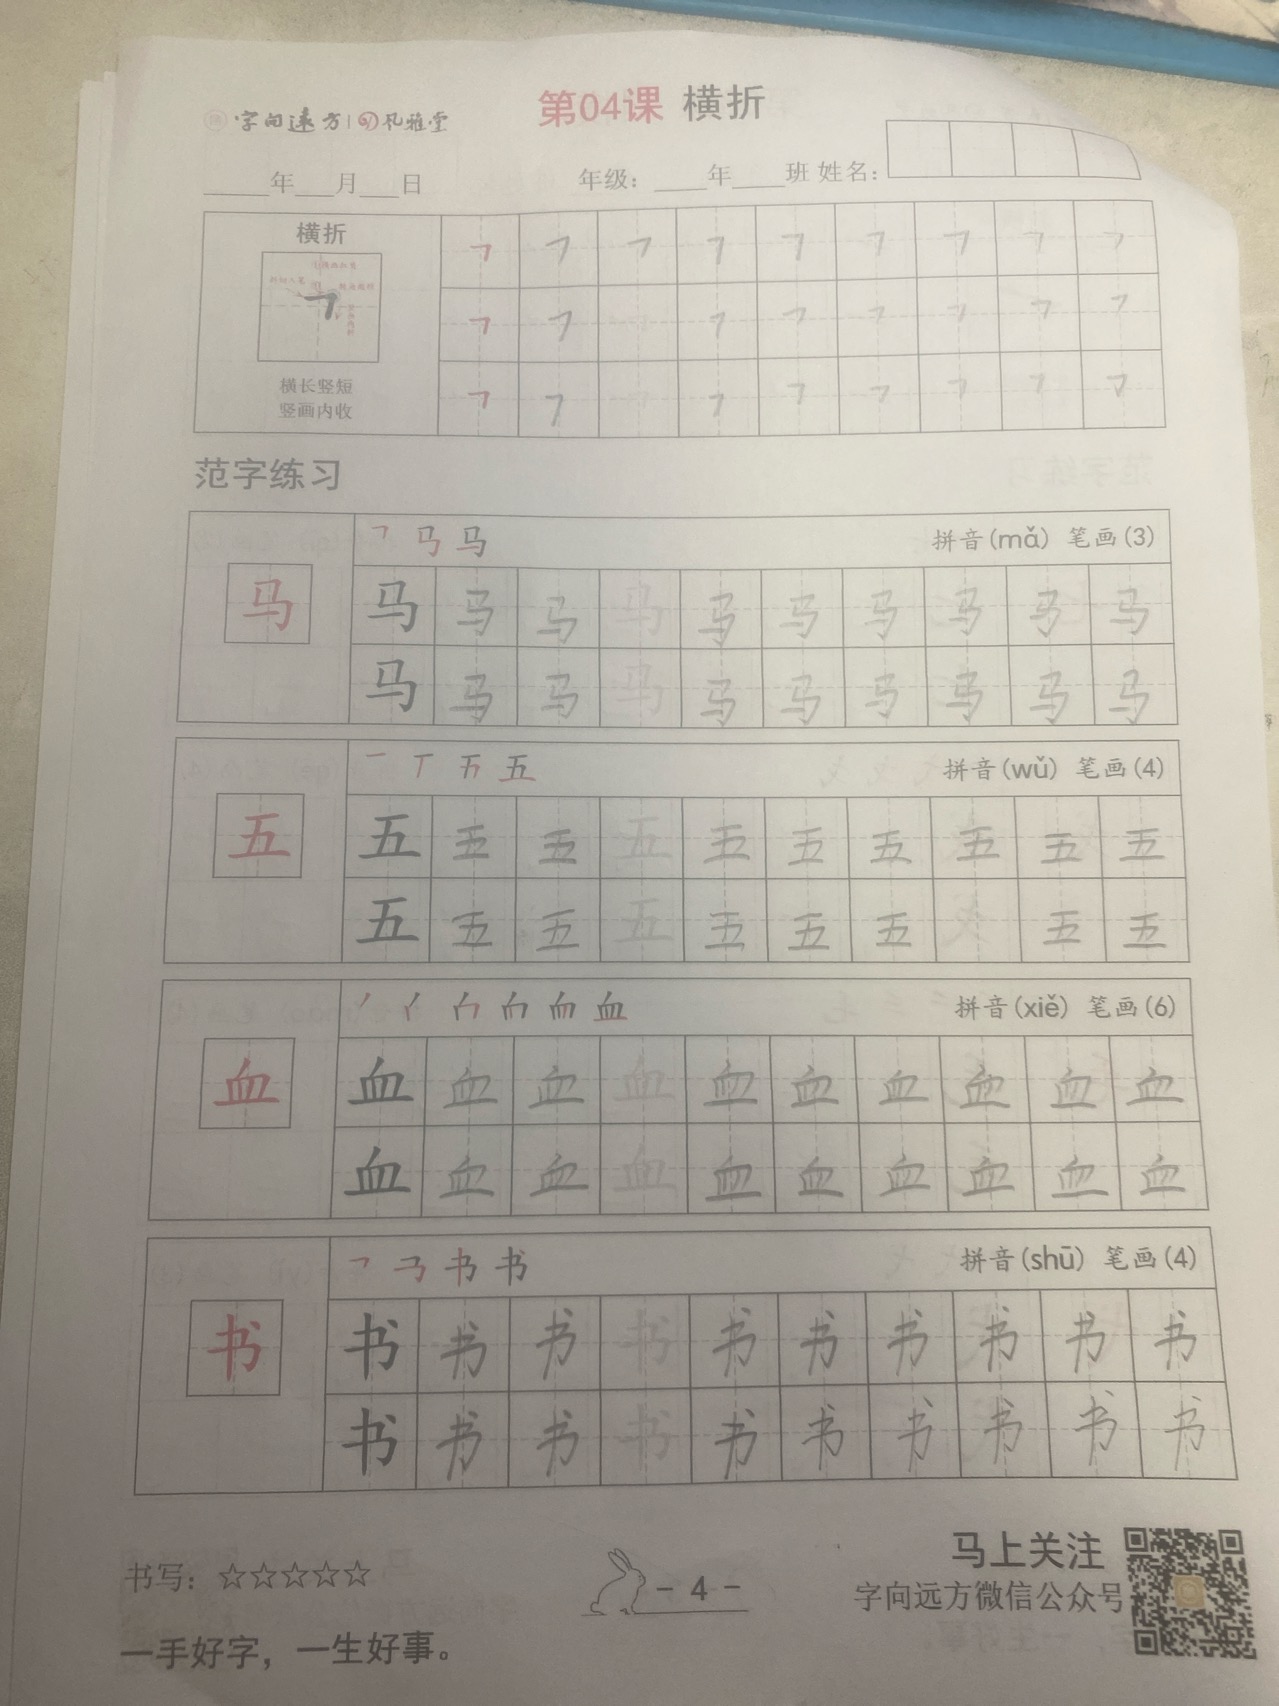 第04课 横折
字向远方 风雅堂
____年___月___日 年级：____年____班 姓名：
横折
横长竖短
竖画内收
范字练习
马 拼音(mǎ) 笔画(3)
马 马 马 马 马 马 马 马 马 马
马 马 马 马 马 马 马 马 马 马
五 拼音(wǔ) 笔画(4)
五 五 五 五 五 五 五 五 五 五
五 五 五 五 五 五 五 五 五
血 拼音(xiě) 笔画(6)
血 血 血 血 血 血 血 血 血 血
血 血 血 血 血 血 血 血 血 血
书 拼音(shū) 笔画(4)
书 书 书 书 书 书 书 书 书 书
书 书 书 书 书 书 书 书 书 书
书写：☆☆☆☆☆
- 4 -
马上关注
字向远方微信公众号
一手好字，一生好事。